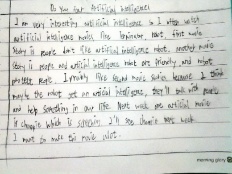 Do you fear Artificial Intelligence?
I am very interesting artificial intelligence So I often watch
artificial intelligence movies, like terminator, next, first movie
story is people don't like artificial intelligence robot, another movie
story is people and artificial intelligence robot are friendly, and robot
protect people. I prefer like second movie stories because I think
maybe the robot get an artificial intelligence, they'll talk with people
and help something in our life. Next week one artificial movie
is chappie which is I'll see them in next week
I want to make this movie
morning glory